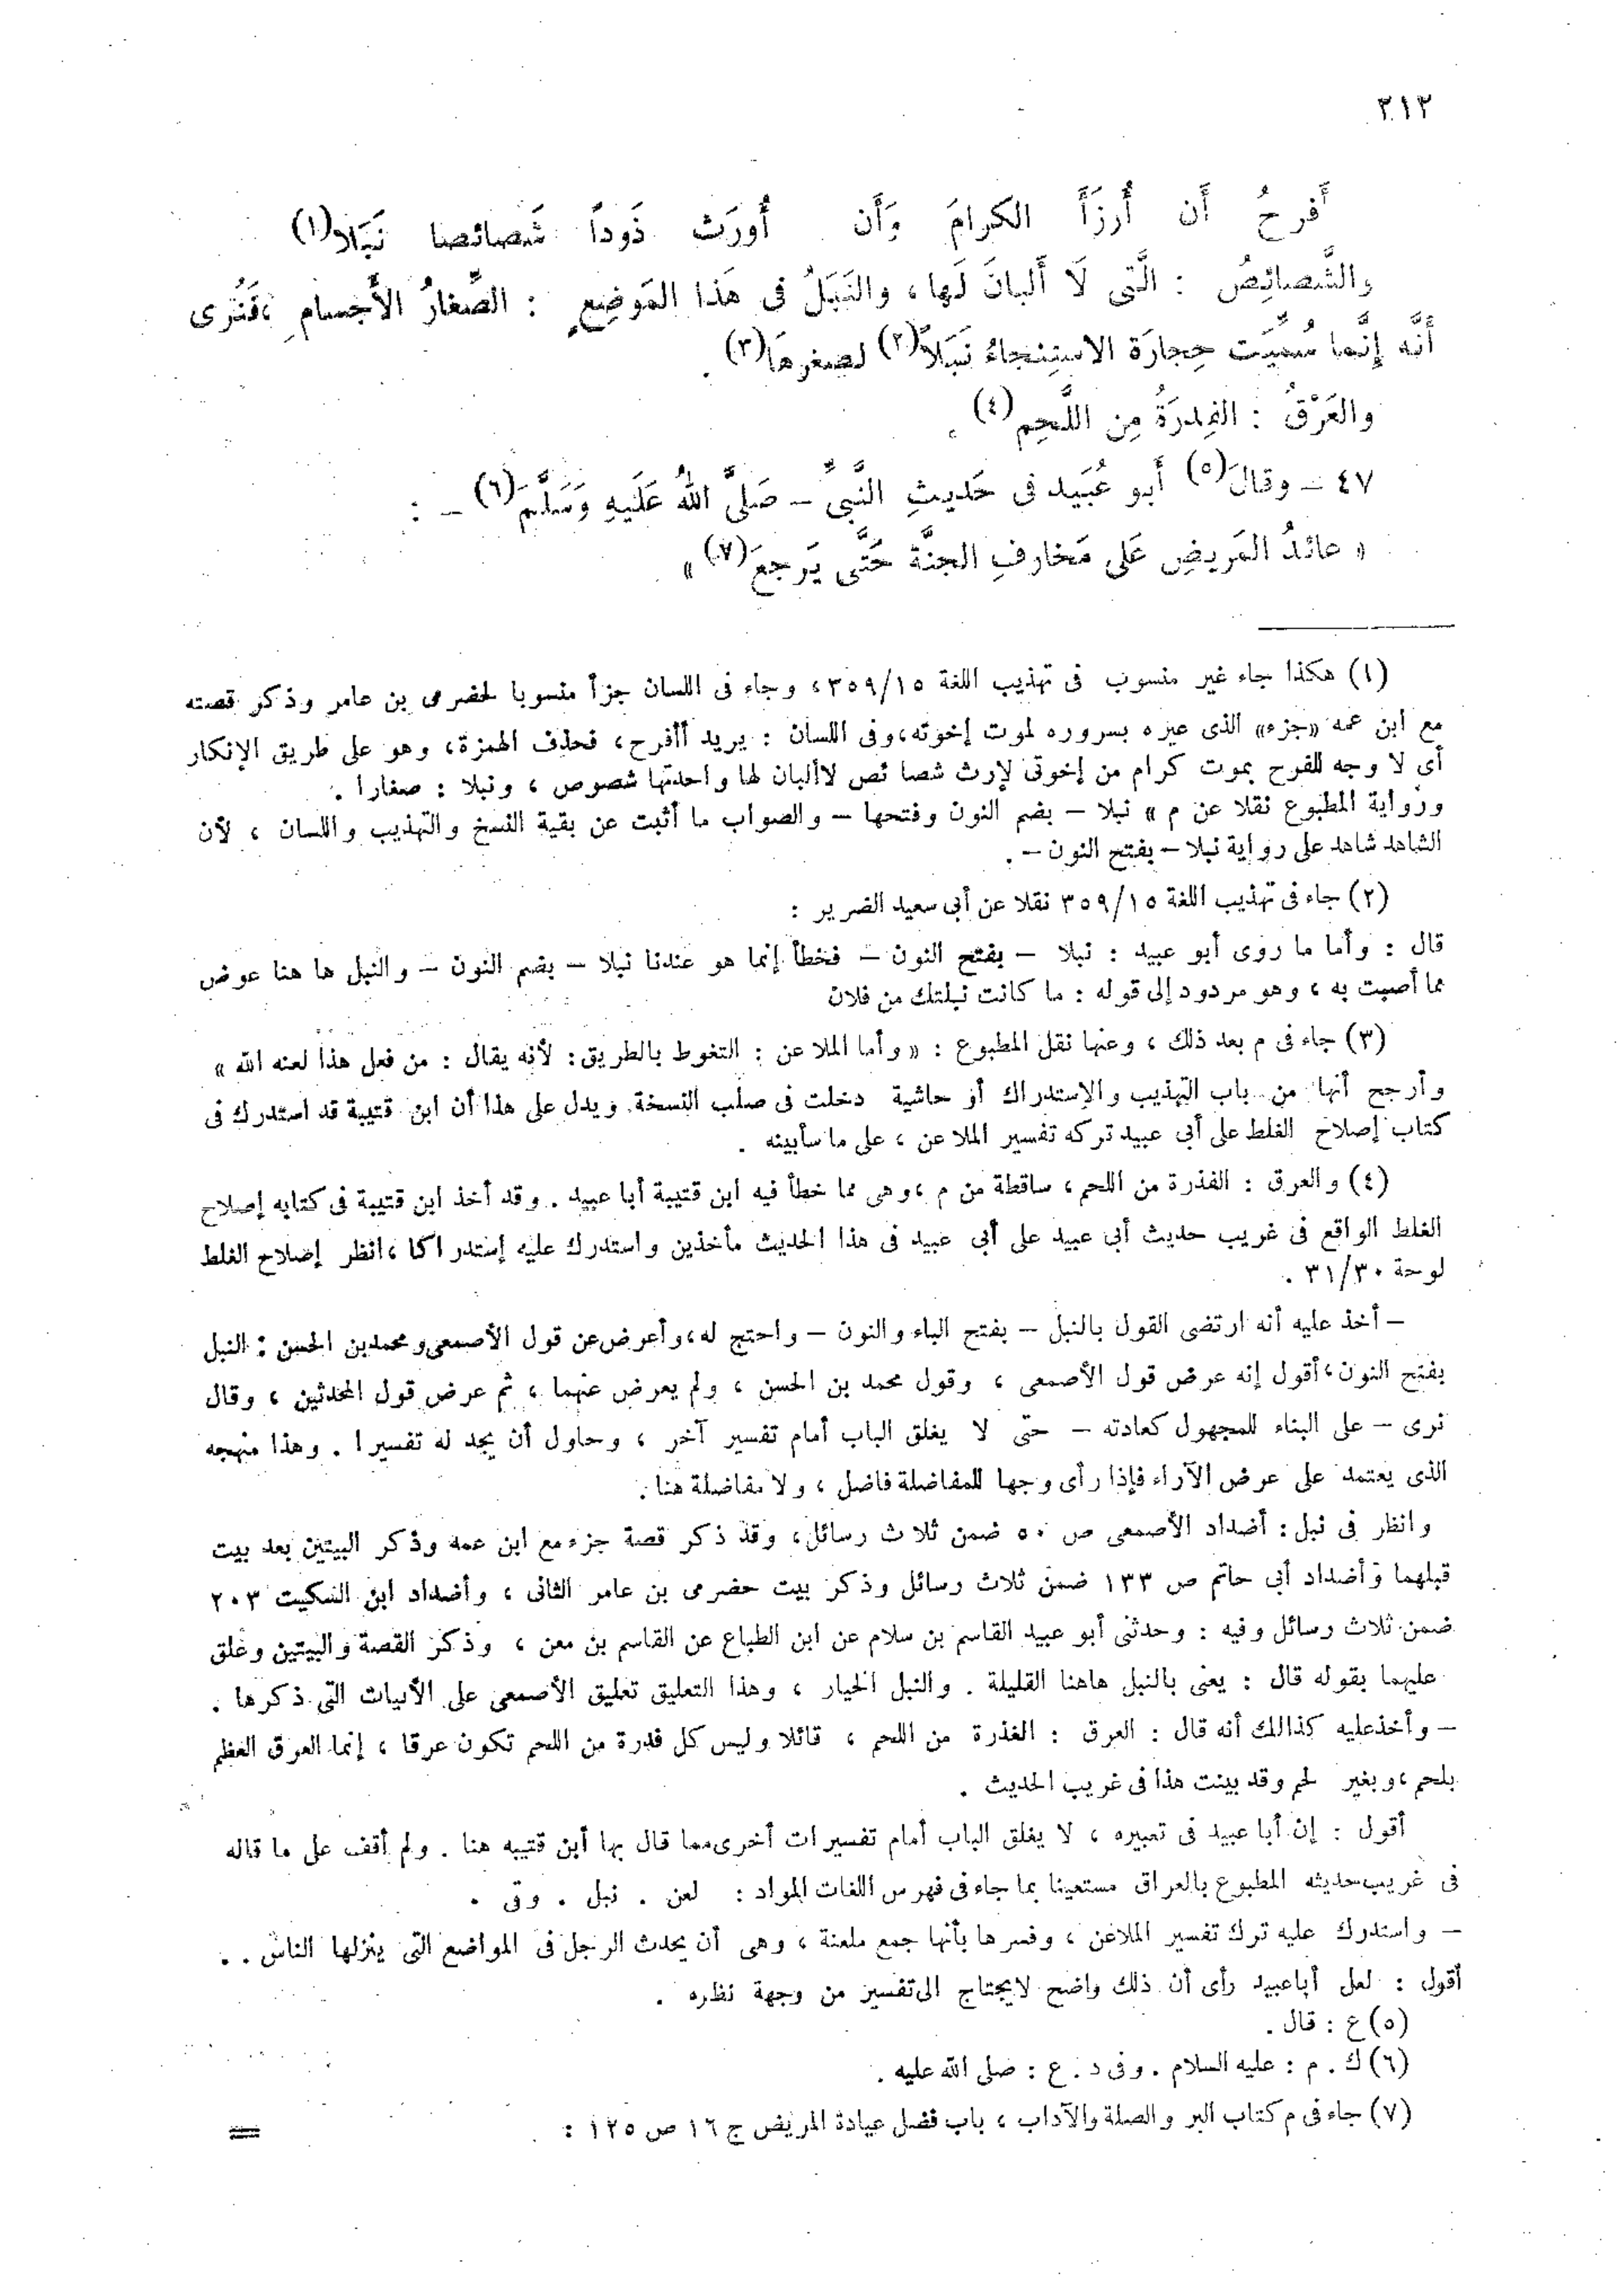 ٣١٢
أَفرحُ أَن أُرزَأَ الكرامَ وَأَن أُورَث ذَوداً شَصائصا نَبَلا(١)
والشَّصائِصُ : الَّتى لَا أَلبانَ لَها ، والنَبَلُ فى هَذا المَوضِعِ : الصِّغارُ الأَجسامِ ، فَنُرى
أَنَّه إِنَّما سُمِّيَت حِجارَة الاستِنجاءُ نَبَلاً(٢) لصغرهَا(٣) .
والعَرْقُ : الفِدرَةُ مِن اللَّحِم(٤) .
٤٧ – وقالَ(٥) أَبو عُبَيد فى حَديثِ النَّبىِّ – صَلىَّ اللهُ عَلَيهِ وَسَلَّمَ(٦) – :
« عائدُ المَريضِ عَلى مَخارفِ الجنَّة حَتَّى يَرجعَ(٧) »
(١) هكذا جاء غير منسوب فى تهذيب اللغة ٣٥٩/١٥ ، وجاء فى اللسان جزأ منسوبا لحضرمى بن عامر وذكر قصته
مع ابن عمه «جزء» الذى عيره بسروره لموت إخوته ، وفى اللسان : يريد أأفرح ، فحذف الهمزة ، وهو على طريق الإنكار
أى لا وجه للفرح بموت كرام من إخوتى لإرث شصا ئص لاألبان لها واحدتها شصوص ، ونبلا : صغارا .
ورواية المطبوع نقلا عن م » نبلا – بضم النون وفتحها – والصواب ما أثبت عن بقية النسخ والتهذيب واللسان ، لأن
الشاهد شاهد على رواية نبلا – بفتح النون – .
(٢) جاء فى تهذيب اللغة ٣٥٩/١٥ نقلا عن أبى سعيد الضرير :
قال : وأما ما روى أبو عبيد : نبلا – بفتح النون – فخطأ إنما هو عندنا نبلا – بضم النون – والنبل ها هنا عوض
مما أصبت به ، وهو مردود إلى قوله : ما كانت نبلتك من فلان
(٣) جاء فى م بعد ذلك ، وعنها نقل المطبوع : « وأما الملا عن : التغوط بالطريق : لأنه يقال : من فعل هذا لعنه الله »
وأرجح أنها من باب التهذيب والإستدراك أو حاشية دخلت فى صلب النسخة ويدل على هذا أن ابن قتيبة قد استدرك فى
كتاب إصلاح الغلط على أبى عبيد تركه تفسير الملا عن ، على ما سأبينه .
(٤) والعرق : الفذرة من اللحم ، ساقطة من م ، وهى مما خطأ فيه ابن قتيبة أبا عبيد . وقد أخذ ابن قتيبة فى كتابه إصلاح
الغلط الواقع فى غريب حديث أبى عبيد على أبى عبيد فى هذا الحديث مأخذين واستدرك عليه إستدراكا ، انظر إصلاح الغلط
لوحة ٣١/٣٠ .
– أخذ عليه أنه ارتضى القول بالنبل – بفتح الباء والنون – واحتج له ، وأعرض عن قول الأصمعى ومحمد بن الحسن : النبل
بفتح النون ، أقول إنه عرض قول الأصمعى ، وقول محمد بن الحسن ، ولم يعرض عنهما ، ثم عرض قول المحدثين ، وقال
نرى – على البناء للمجهول كعادته – حتى لا يغلق الباب أمام تفسير آخر ، وحاول أن يجد له تفسيرا . وهذا منهجه
الذى يعتمد على عرض الآراء فإذا رأى وجها للمفاضلة فاضل ، ولا مفاضلة هنا .
وانظر فى نبل : أضداد الأصمعى ص ٥٠ ضمن ثلاث رسائل ، وقد ذكر قصة جزء مع ابن عمه وذكر البيتين بعد بيت
قبلهما وأضداد أبى حاتم ص ١٣٣ ضمن ثلاث رسائل وذكر بيت حضرمى بن عامر الثانى ، وأضداد ابن السكيت ٢٠٣
ضمن ثلاث رسائل وفيه : وحدثنى أبو عبيد القاسم بن سلام عن ابن الطباع عن القاسم بن معن ، وذكر القصة والبيتين وعلق
عليهما بقوله قال : يعنى بالنبل هاهنا القليلة . والنبل الخيار ، وهذا التعليق تعليق الأصمعى على الأبيات التى ذكرها .
– وأخذ عليه كذالك أنه قال : العرق : الغذرة من اللحم ، قائلا وليس كل فدرة من اللحم تكون عرقا ، إنما العرق العظم
بلحم ، وبغير لحم وقد بينت هذا فى غريب الحديث .
أقول : إن أبا عبيد فى تعبيره ، لا يغلق الباب أمام تفسيرات أخرى مما قال بها أبن قتيبه هنا . ولم أقف على ما قاله
فى غريب حديثه المطبوع بالعراق مستعينا بما جاء فى فهرس اللغات المواد : لعن . نبل . وفى .
– واستدرك عليه ترك تفسير الملاعن ، وفسرها بأنها جمع ملعنة ، وهى أن يحدث الرجل فى المواضع التى ينزلها الناس . .
أقول : لعل أباعبيد رأى أن ذلك واضح لايحتاج الى تفسير من وجهة نظره .
(٥) ع : قال .
(٦) ك . م : عليه السلام . وفى د . ع : صلى الله عليه .
(٧) جاء فى م كتاب البر والصلة والآداب ، باب فضل عيادة المريض ج ١٦ ص ١٢٥ :
=